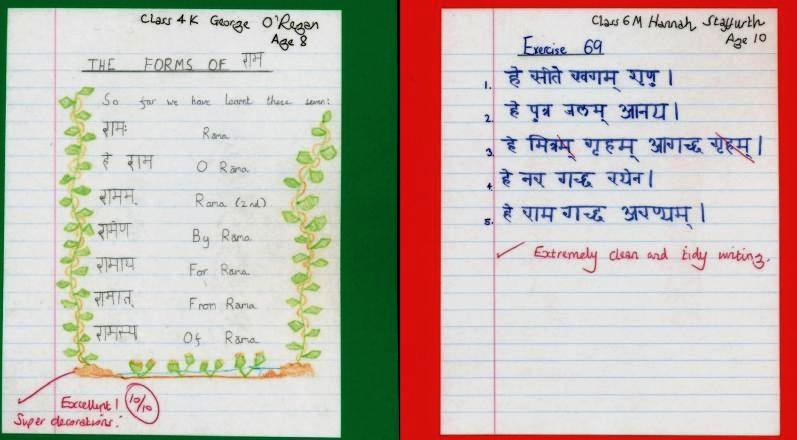 Class 4K George O'Regan
Age 8
THE FORMS OF राम
So far we have learnt these seven:
रामः Rama
हे राम O Rama
रामम् Rama (2nd)
रामेण By Rama
रामाय For Rama
रामात् From Rama
रामस्य Of Rama
Excellent! 10/10
Super decorations.
Class 6M Hannah Staffurth
Age 10
Exercise 69
1. हे सीते खगम् शृणु ।
2. हे पुत्र जलम् आनय ।
3. हे मित्रम् गृहम् आगच्छ गृहम् ।
4. हे नर गच्छ रथेन ।
5. हे राम गच्छ अरण्यम् ।
Extremely clean and tidy writing.